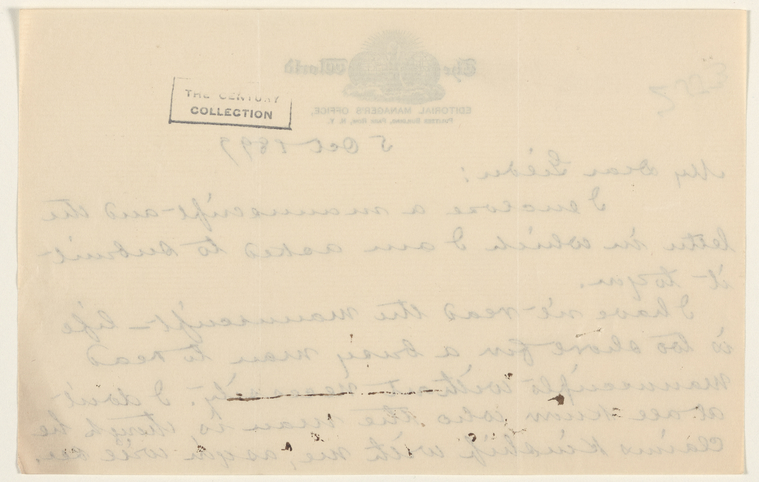 The World
EDITORIAL MANAGER'S OFFICE,
PULITZER BUILDING, PARK ROW, N. Y.
THE CENTURY
COLLECTION
5 Oct 1897
My dear Gilder:
I enclose a manuscript and the
letter in which I am asked to submit
it to you.
I have n't read the manuscript—life
is too short for a busy man to read
manuscripts without necessity. I don't
at all know who the man is though he
claims kinship with me, as you will see.